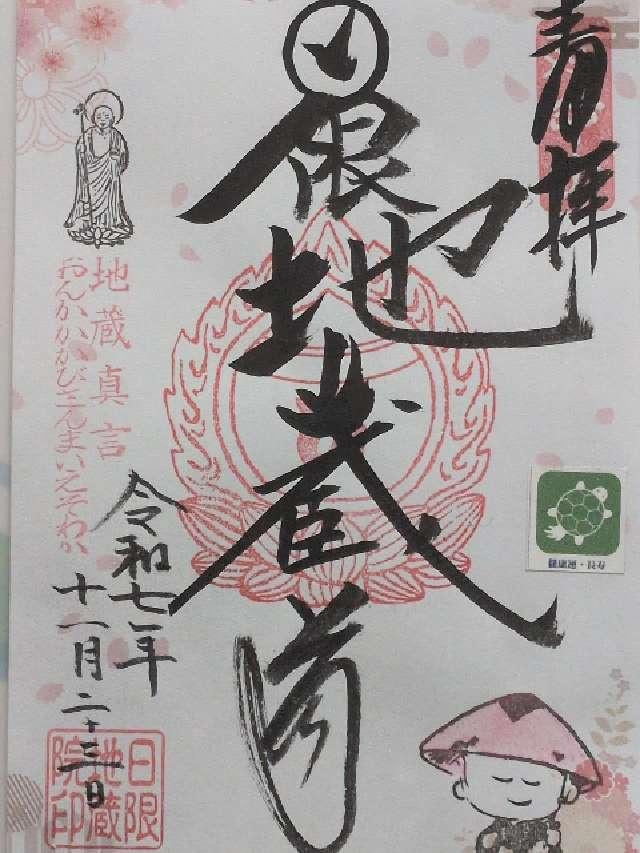 奉拝
日限地蔵尊
地蔵真言
おんかかかびさんまいえそわか
令和七年
十一月二十三日
日限
地蔵
院印
健康運・長寿